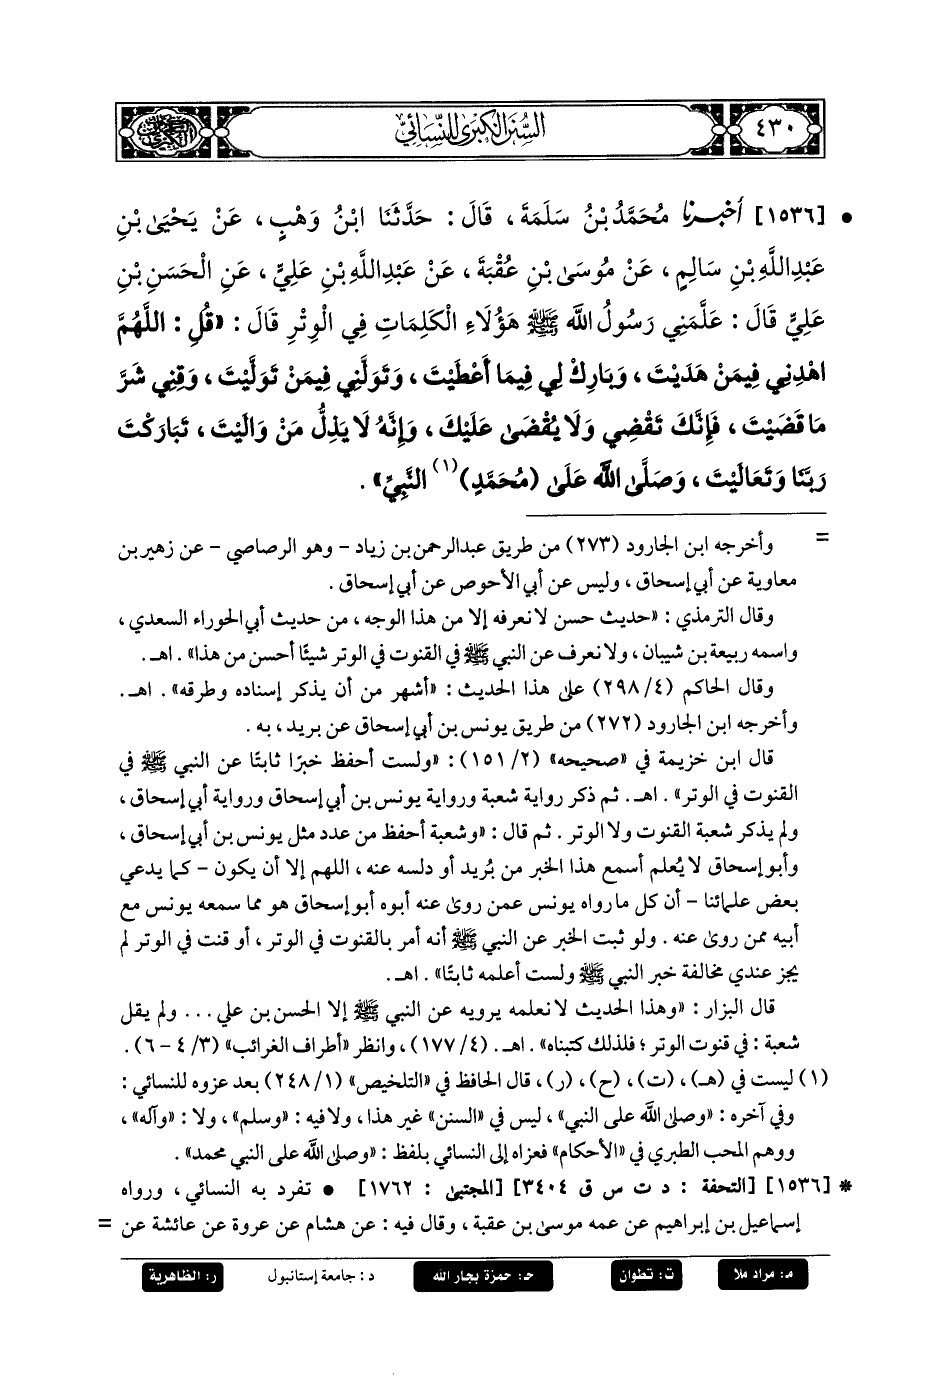 ٤٣٠
السُّنَنُ الْكُبْرَى لِلنَّسَائِيِّ
• [١٥٣٦] أَخْبَرَنَا مُحَمَّدُ بْنُ سَلَمَةَ ، قَالَ : حَدَّثَنَا ابْنُ وَهْبٍ ، عَنْ يَحْيَىٰ بْنِ
عَبْدِ اللَّهِ بْنِ سَالِمٍ ، عَنْ مُوسَىٰ بْنِ عُقْبَةَ ، عَنْ عَبْدِ اللَّهِ بْنِ عَلِيٍّ ، عَنِ الْحَسَنِ بْنِ
عَلِيٍّ قَالَ : عَلَّمَنِي رَسُولُ اللَّهِ ﷺ هَؤُلَاءِ الْكَلِمَاتِ فِي الْوِتْرِ قَالَ : «قُلِ : اللَّهُمَّ
اهْدِنِي فِيمَنْ هَدَيْتَ ، وَبَارِكْ لِي فِيمَا أَعْطَيْتَ ، وَتَوَلَّنِي فِيمَنْ تَوَلَّيْتَ ، وَقِنِي شَرَّ
مَا قَضَيْتَ ، فَإِنَّكَ تَقْضِي وَلَا يُقْضَىٰ عَلَيْكَ ، وَإِنَّهُ لَا يَذِلُّ مَنْ وَالَيْتَ ، تَبَارَكْتَ
رَبَّنَا وَتَعَالَيْتَ ، وَصَلَّى اللَّهُ عَلَىٰ (مُحَمَّدٍ)(١) النَّبِيِّ» .
= وأخرجه ابن الجارود (٢٧٣) من طريق عبدالرحمن بن زياد - وهو الرصاصي - عن زهير بن
معاوية عن أبي إسحاق ، وليس عن أبي الأحوص عن أبي إسحاق .
وقال الترمذي : «حديث حسن لا نعرفه إلا من هذا الوجه ، من حديث أبي الحوراء السعدي ،
واسمه ربيعة بن شيبان ، ولا نعرف عن النبي ﷺ في القنوت في الوتر شيئًا أحسن من هذا» . اهـ .
وقال الحاكم (٤/ ٢٩٨) على هذا الحديث : «أشهر من أن يذكر إسناده وطرقه» . اهـ .
وأخرجه ابن الجارود (٢٧٢) من طريق يونس بن أبي إسحاق عن بريد ، به .
قال ابن خزيمة في «صحيحه» (٢/ ١٥١) : «ولست أحفظ خبرًا ثابتًا عن النبي ﷺ في
القنوت في الوتر» . اهـ . ثم ذكر رواية شعبة ورواية يونس بن أبي إسحاق ورواية أبي إسحاق ،
ولم يذكر شعبة القنوت ولا الوتر . ثم قال : «وشعبة أحفظ من عدد مثل يونس بن أبي إسحاق ،
وأبو إسحاق لا يُعلم أسمع هذا الخبر من بُريد أو دلسه عنه ، اللهم إلا أن يكون - كما يدعي
بعض علمائنا - أن كل ما رواه يونس عمن روى عنه أبوه أبو إسحاق هو مما سمعه يونس مع
أبيه ممن روى عنه . ولو ثبت الخبر عن النبي ﷺ أنه أمر بالقنوت في الوتر ، أو قنت في الوتر لم
يجز عندي مخالفة خبر النبي ﷺ ولست أعلمه ثابتًا» . اهـ .
قال البزار : «وهذا الحديث لا نعلمه يرويه عن النبي ﷺ إلا الحسن بن علي ... ولم يقل
شعبة : في قنوت الوتر ؛ فلذلك كتبناه» . اهـ . (٤/ ١٧٧) ، وانظر «أطراف الغرائب» (٣/ ٤ - ٦) .
(١) ليست في (هـ) ، (ت) ، (ح) ، (ر) ، قال الحافظ في «التلخيص» (١/ ٢٤٨) بعد عزوه للنسائي :
وفي آخره : «وصلى الله على النبي» ، ليس في «السنن» غير هذا ، ولا فيه : «وسلم» ، ولا : «وآله» ،
ووهم المحب الطبري في «الأحكام» فعزاه إلى النسائي بلفظ : «وصلى الله على النبي محمد» .
* [١٥٣٦] [التحفة : د ت س ق ٣٤٠٤] [المجتبى : ١٧٦٢] • تفرد به النسائي ، ورواه
إسماعيل بن إبراهيم عن عمه موسى بن عقبة ، وقال فيه : عن هشام عن عروة عن عائشة عن =
م: مراد ملا ت: تطوان حـ: حمزة بجار الله د: جامعة إستانبول ر: الظاهرية